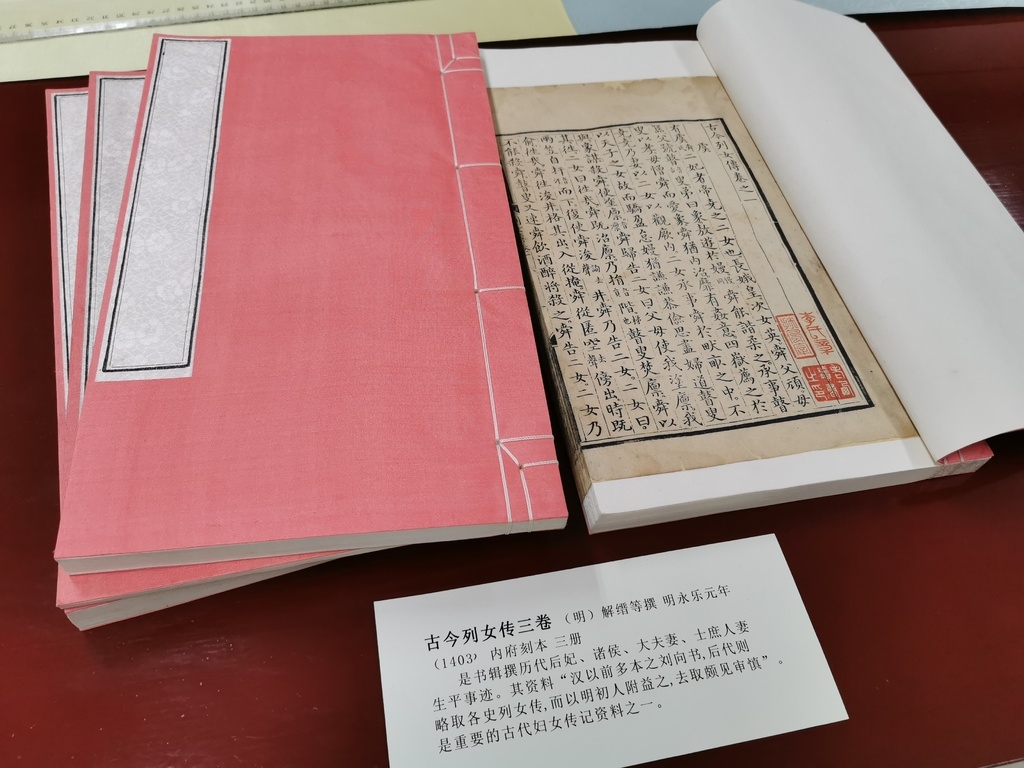 古今列女傳卷之一
虞
有虞二妃者帝堯之二女也長娥皇次女英舜父頑母
嚚父號瞽叟弟曰象敖遊於嫚舜能諧柔之承事瞽
叟以孝母憎舜而愛象舜猶內治靡有姦意四嶽薦之於
堯堯乃妻以二女以觀厥內二女承事舜於畎畝之中不
以天子之女故而驕盈怠嫚猶謙謙恭儉思盡婦道瞽叟
與象謀殺舜使塗廩舜歸告二女曰父母使我塗廩我
其往二女曰往哉舜既治廩乃捐階瞽叟焚廩舜以
兩笠自扞而下復使舜浚井舜乃告二女二女曰
俞往哉舜往浚井格其出入從掩舜從匿空傍出時既
不能殺舜瞽叟又速舜飲酒醉將殺之舜告二女二女乃
古今列女传三卷 （明）解缙等撰 明永乐元年
（1403） 内府刻本 三册
是书辑撰历代后妃、诸侯、大夫妻、士庶人妻
生平事迹。其资料“汉以前多本之刘向书,后代则
略取各史列女传,而以明初人附益之,去取颇见审慎”。
是重要的古代妇女传记资料之一。